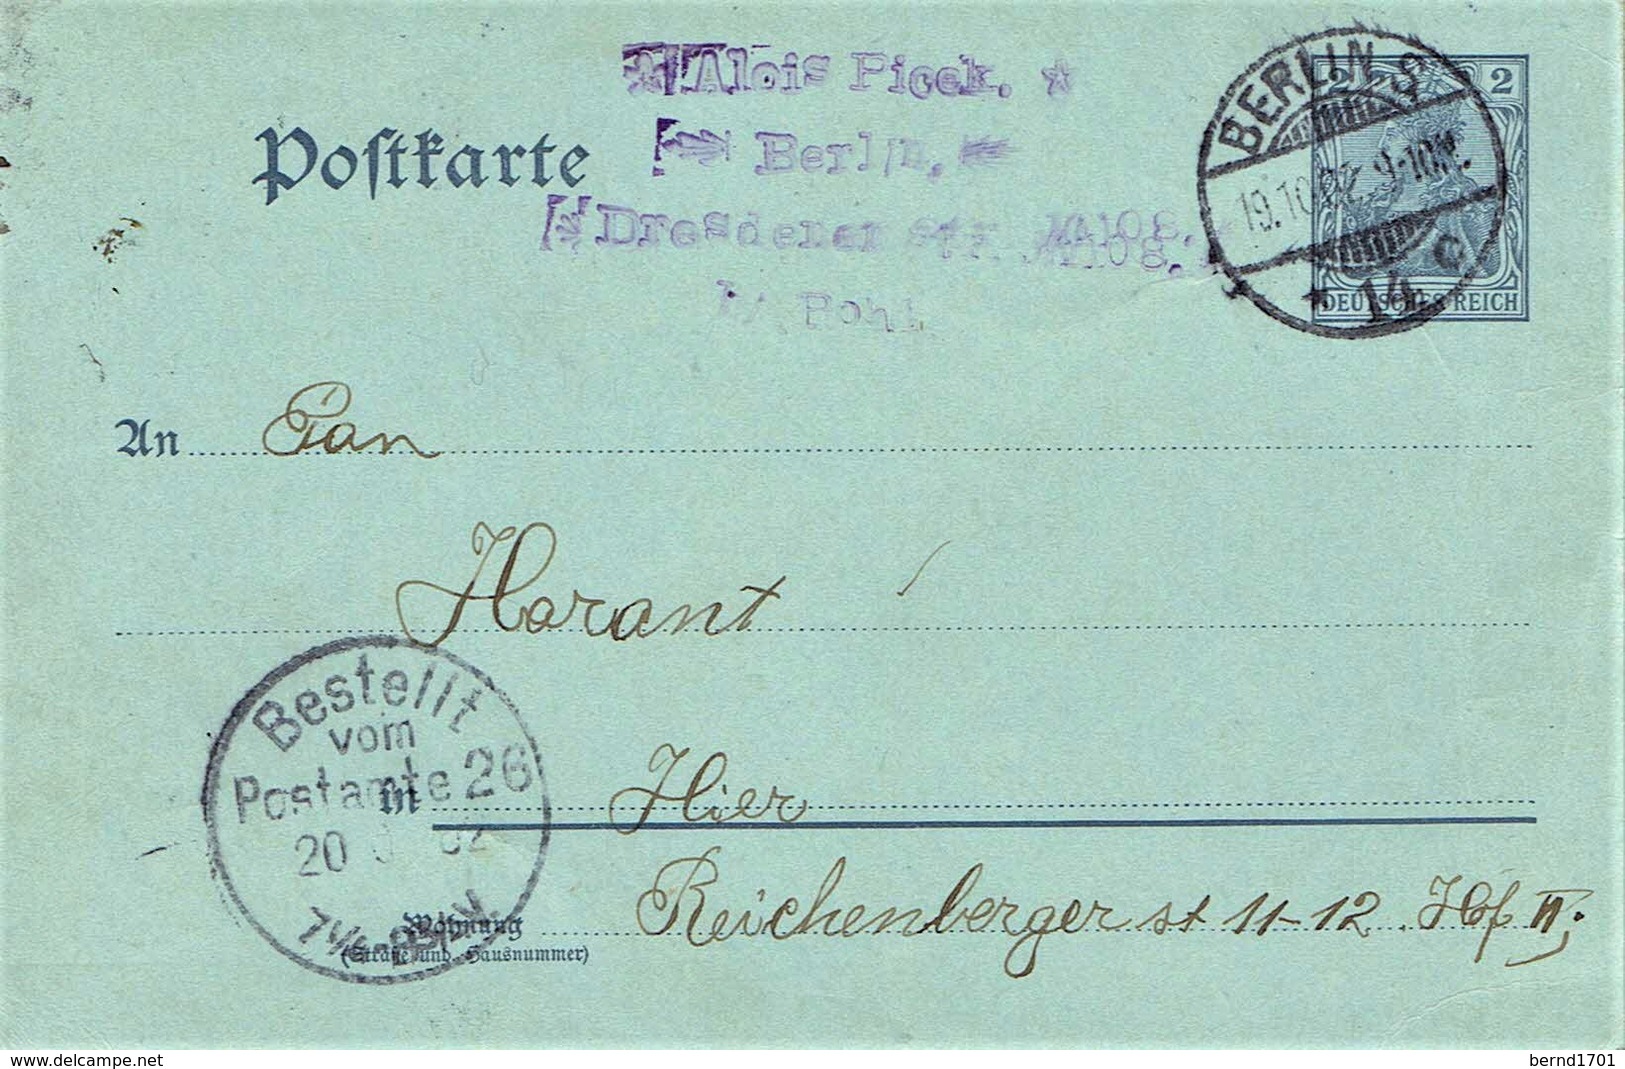 Alois Picek.
Postkarte
Berlin.
Dresdener str. №108.
b/ Pohl
BERLIN S
19.10.02. 9-10N.
* 14 c
2 2
DEUTSCHES REICH
An Pan
Horant
Bestellt
vom
Postamte 26
20 02
in Hier
Wohnung
(Straße und Hausnummer)
Reichenberger st 11-12. Hof II;
www.delcampe.net
bernd1701